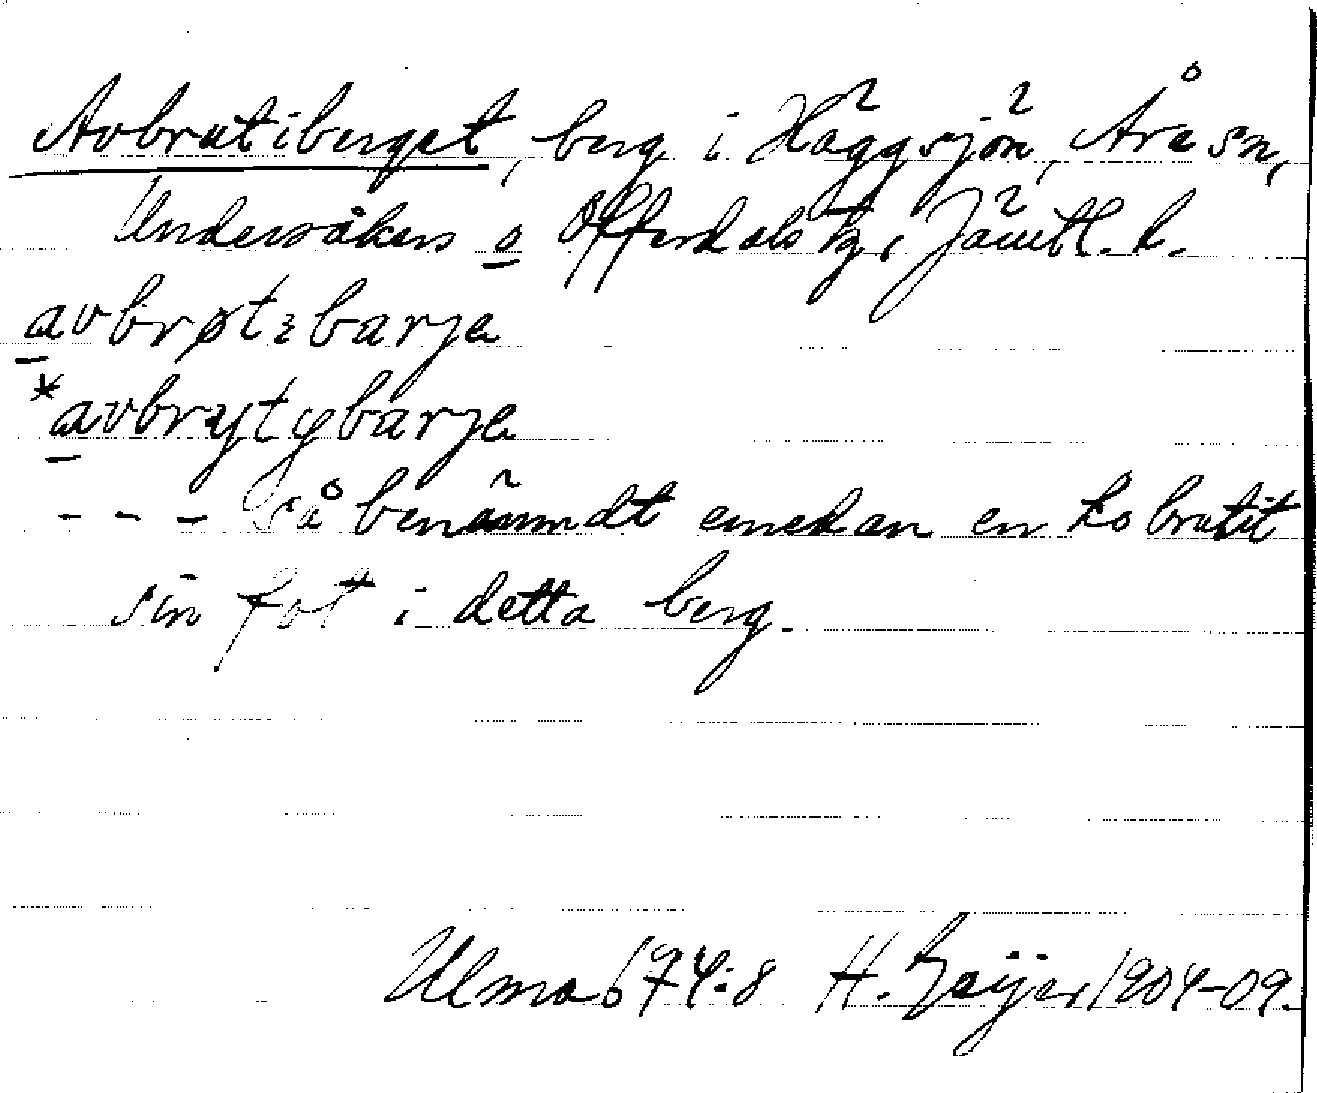 Avbrutiberget, berg i Häggsjön, Åre sn,
Undersåkers o Offerdals tg, Jämtl. l.
avbrøtɛbarje
*avbrytybarje
- - - så benämndt emedan en ko brutit
sin fot i detta berg.
Ulma 674:8 H. Geijer 1904-09.